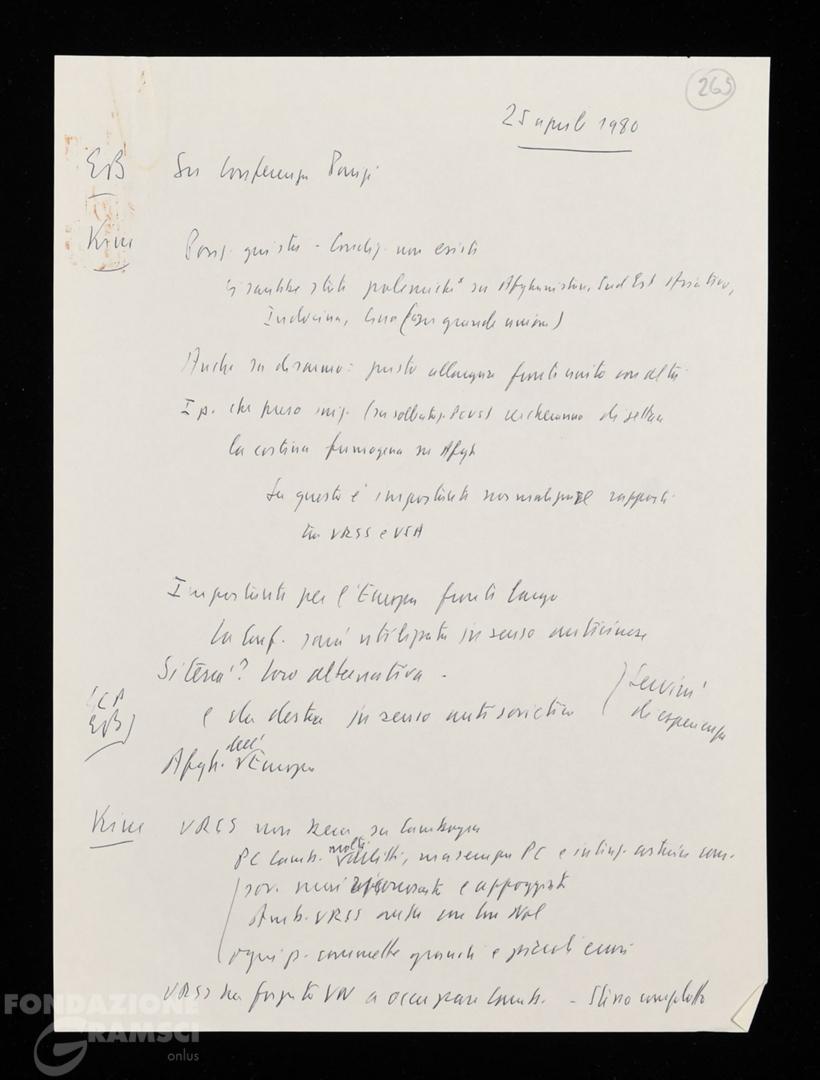 265
25 aprile 1980
EB Su Conferenza Parigi
Kim Posiz. giusta - Condiz. non esisti
Ci sarebbe stata polemiche su Afghanistan, Sud Est Asiatico,
Indocina, Cina (con grande unione)
Anche su disarmo: giusto allargare fronte unito con altri
I p. che preso iniz. cercheranno di
la cortina fumogena su Afgh
Su questo è importante normalizzare rapporti
tra URSS e USA
Importante per l'Europa fronte largo
La Conf. sarà utilizzata in senso anticinese
Si terrà? Loro alternativa -
EB) e da destra in senso antisovietico
) Servirà
di esperienza
Afgh. dell' Europa
Kim URSS non su Cambogia
PC Camb. molti difetti, ma sempre PC e
sov. mai e appoggiati
Amb. URSS anche con Lon Nol
ogni p. commette grandi e piccoli errori
URSS ha forzato VN a occupare Camb. -
FONDAZIONE
GRAMSCI
onlus